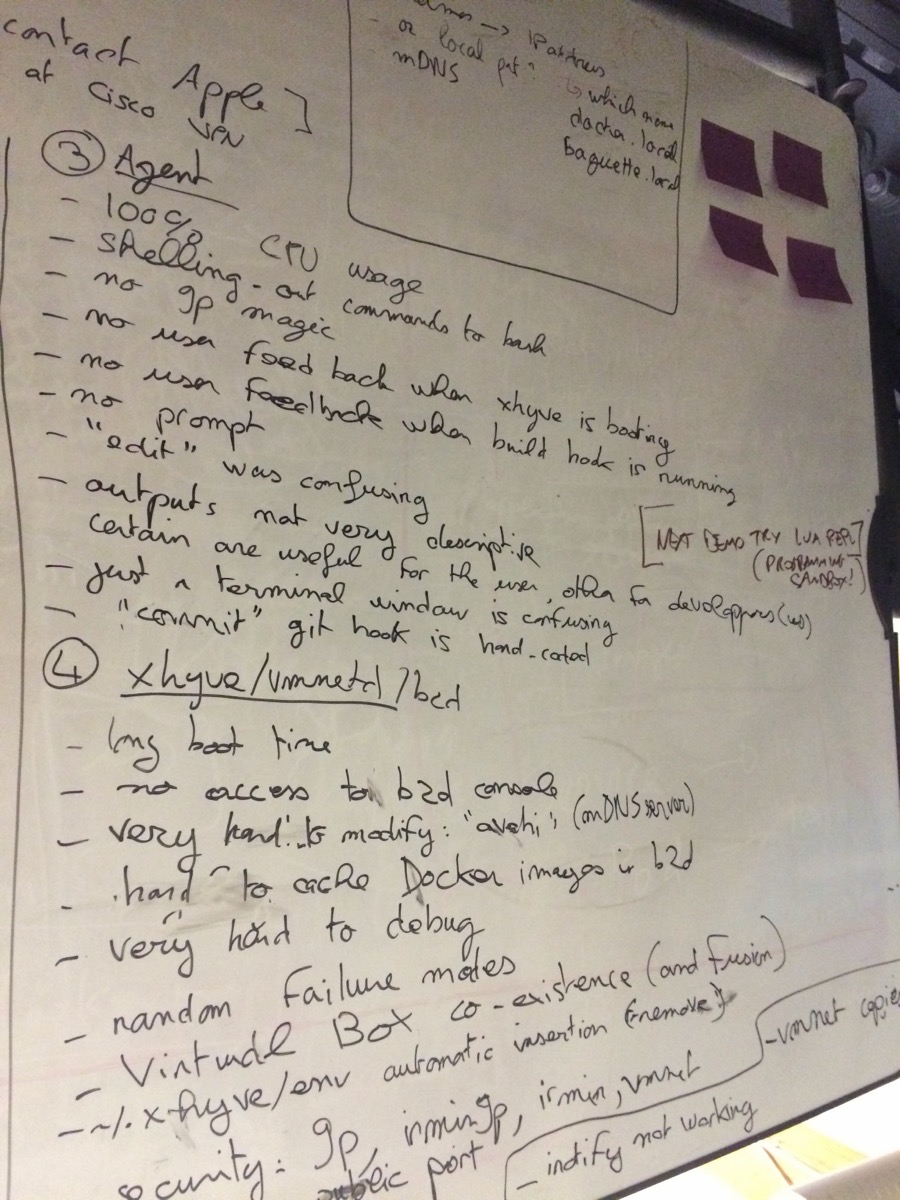 contact Apple ]
at Cisco
VPN
→ IP address
or local
mDNS
↳ which name
docha.local
baguette.local
③ Agent
- 100% CPU usage
- shelling-out commands to bash
- no 9p magic
- no user feed back when xhyve is booting
- no user feedback when build hook is running
- no prompt
- "edit" was confusing
- outputs not very descriptive
certain are useful for the user, other for developpers (us)
- just a terminal window is confusing
- "commit" git hook is hard-coded
[NEXT DEMO TRY LUA REPL]
(PROGRAMMING
SANDBOX!)
④ xhyve/vmnetd/b2d
- long boot time
- no access to b2d console
- very hard to modify: "avahi", (mDNS server)
- hard to cache Docker images in b2d
- very hard to debug
- random failure modes
- Virtual Box co-existence (and Fusion)
- ~/.xhyve/env automatic insertion (+remove)
security: 9p, irmin9p, irmin, vmnet
public port
- vmnet copies
- inotify not working